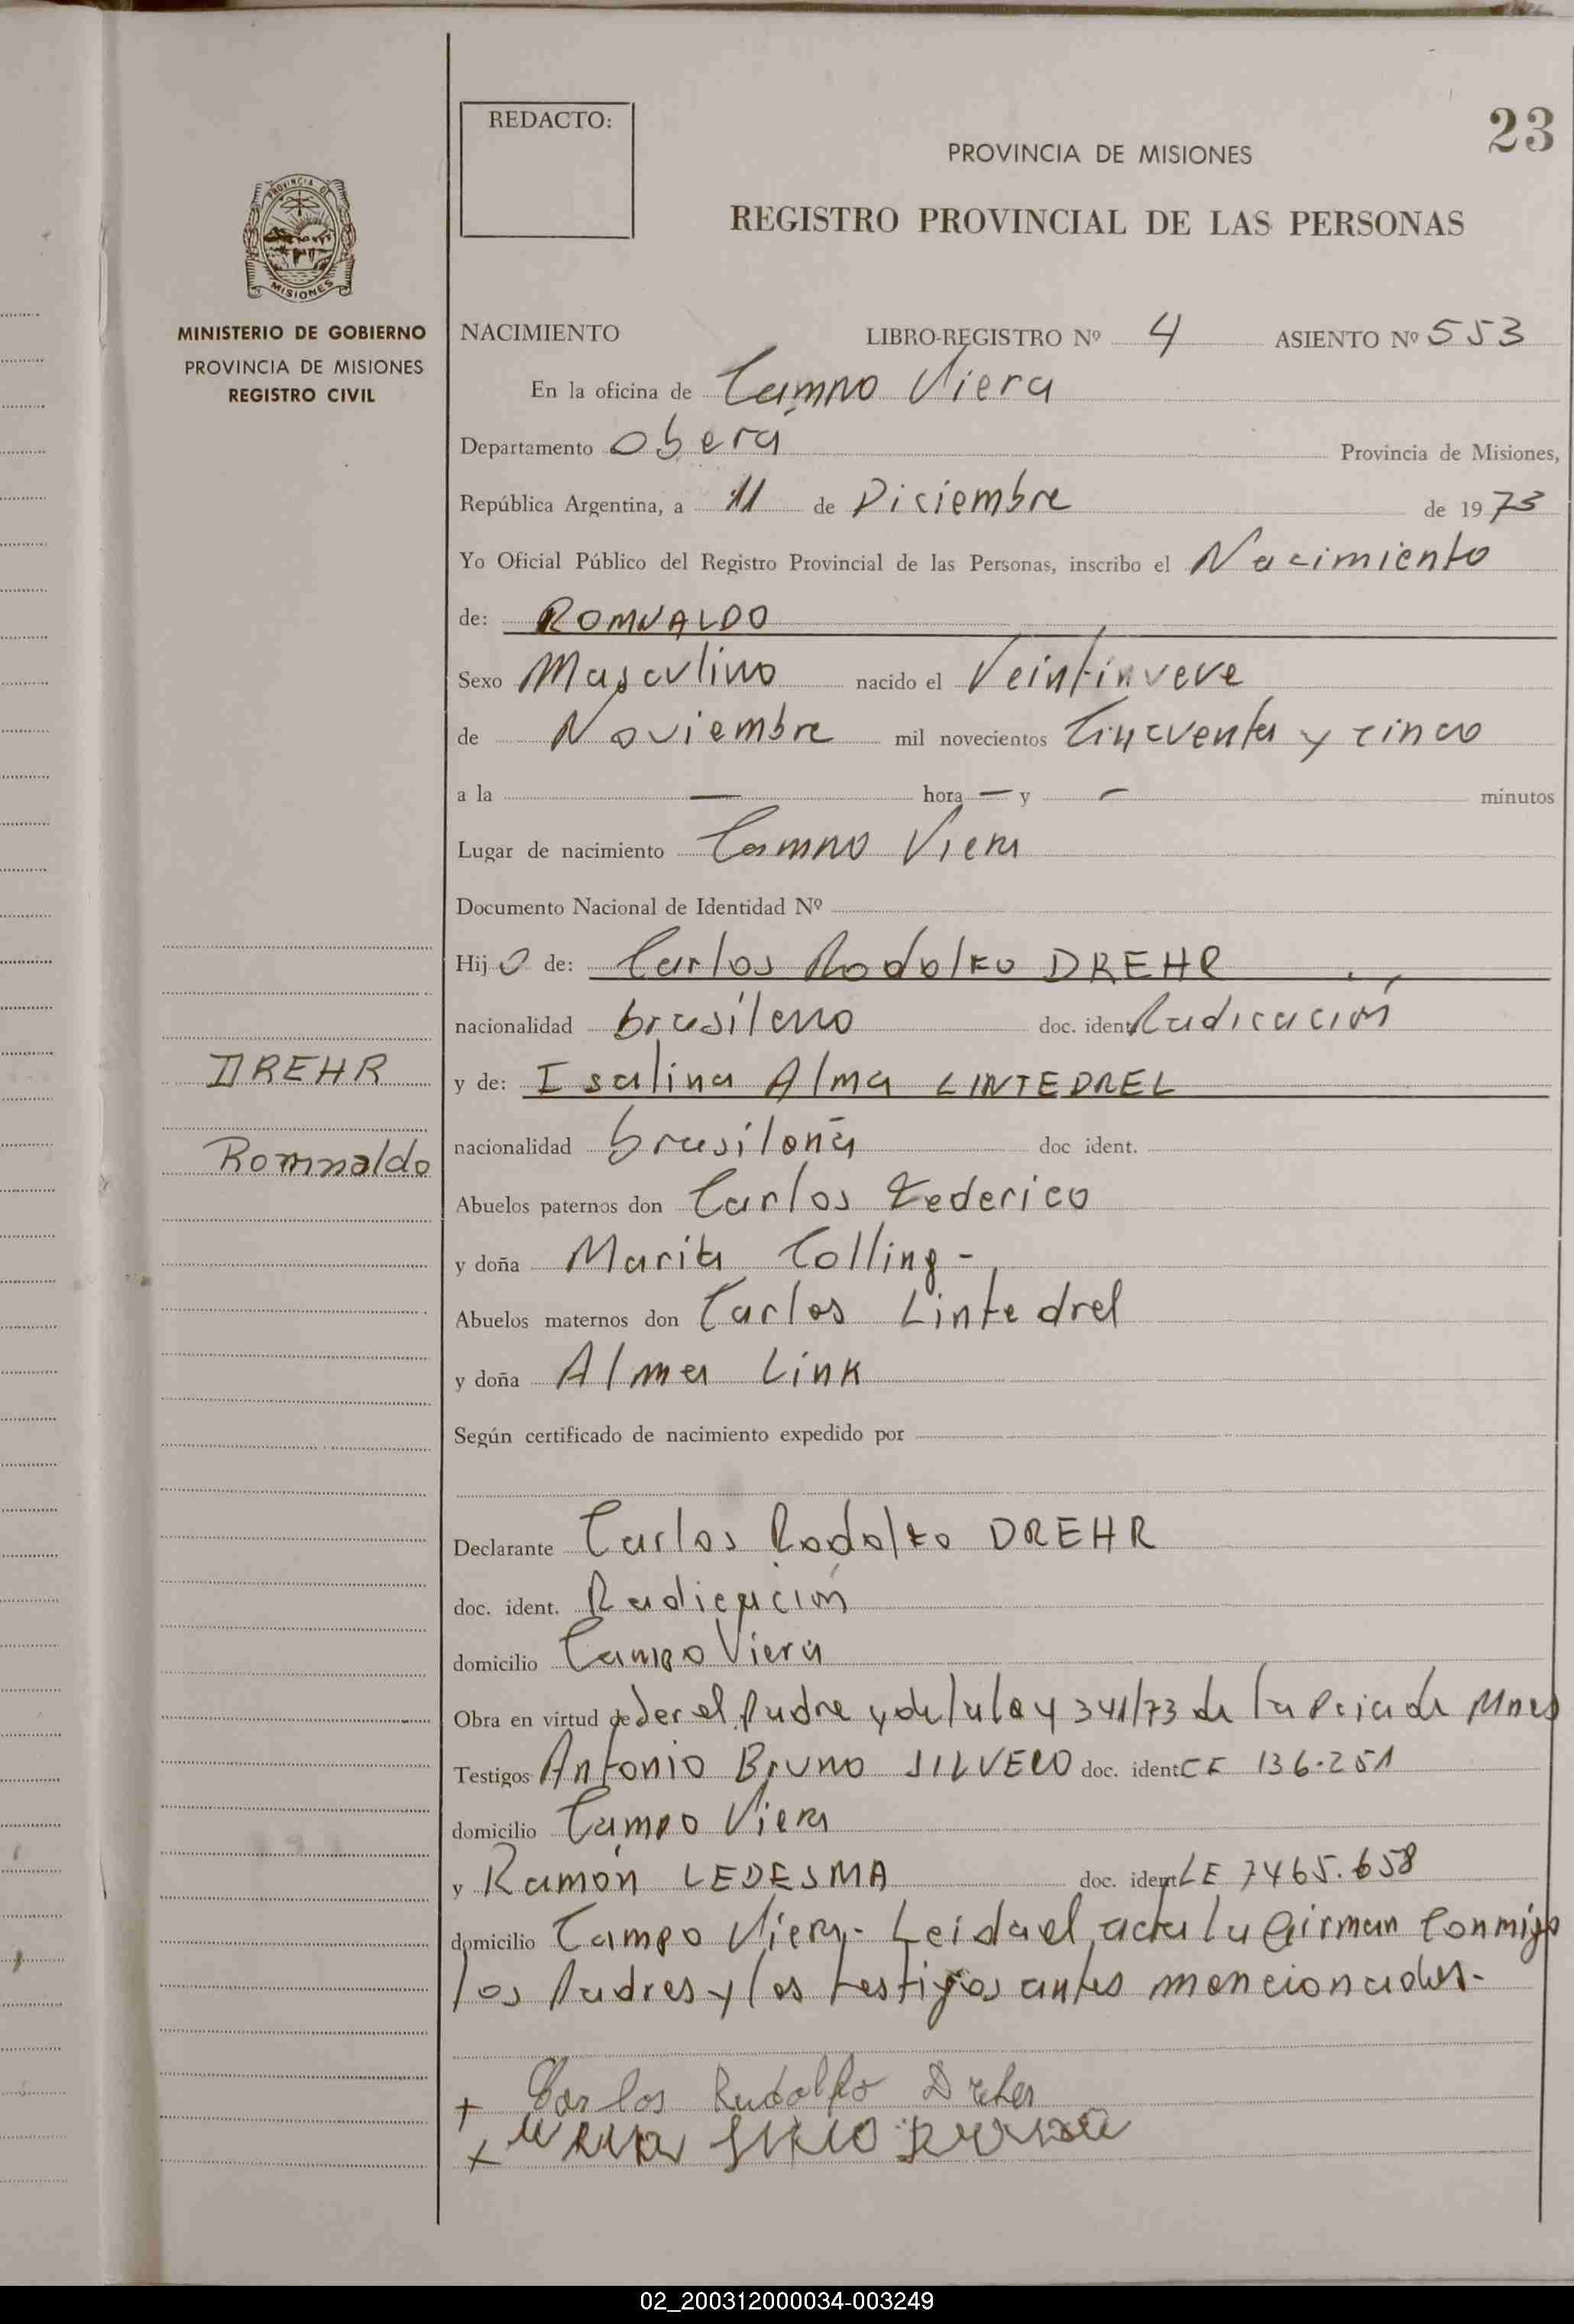 23
REDACTO:
PROVINCIA DE MISIONES
REGISTRO PROVINCIAL DE LAS PERSONAS
PROVINCIA DE
MISIONES
MINISTERIO DE GOBIERNO
PROVINCIA DE MISIONES
REGISTRO CIVIL
NACIMIENTO LIBRO-REGISTRO Nº 4 ASIENTO Nº 553
En la oficina de Campo Viera
Departamento Oberá Provincia de Misiones,
República Argentina, a 11 de Diciembre de 1973
Yo Oficial Público del Registro Provincial de las Personas, inscribo el Nacimiento
de: ROMUALDO
Sexo Masculino nacido el Veintinueve
de Noviembre mil novecientos Cincuenta y cinco
a la — hora — y — minutos
Lugar de nacimiento Campo Viera
Documento Nacional de Identidad Nº
Hijo de: Carlos Rodolfo DREHR
nacionalidad brasileño doc. ident Radicación
DREHR
y de: Isalina Alma LINTEDREL
nacionalidad brasileña doc ident.
Romualdo
Abuelos paternos don Carlos Federico
y doña Maria Colling -
Abuelos maternos don Carlos Lintedrel
y doña Alma Link
Según certificado de nacimiento expedido por
Declarante Carlos Rodolfo DREHR
doc. ident. Radicación
domicilio Campo Viera
Obra en virtud de ser el Padre y de la ley 341/73 de la Pcia de Mnes
Testigos Antonio Bruno SILVERO doc. ident CF 136.251
domicilio Campo Viera
y Ramón LEDESMA doc. ident LE 7465.658
domicilio Campo Viera - Leida el acta la firman conmigo
los Padres y los testigos antes mencionados.
+ Carlos Rudolfo Dreher
x
02_200312000034-003249